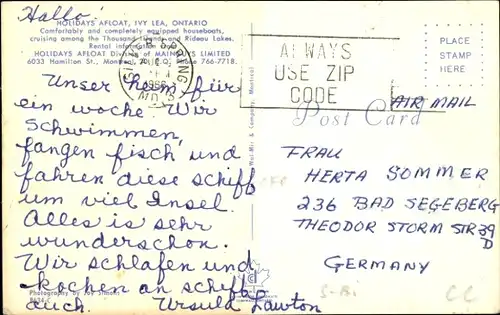 Hallo!
HOLIDAYS AFLOAT, IVY LEA, ONTARIO
Comfortably and completely equipped houseboats,
cruising among the Thousand Islands and Rideau Lakes.
Rental information
HOLIDAYS AFLOAT Division of MAINGUYS LIMITED
6033 Hamilton St., Montreal, 20, P.Q. Phone 766-7718.
SILVER SPRING
MD
ALWAYS
USE ZIP
CODE
PLACE
STAMP
HERE
AIR MAIL
Post Card
Unser heim für
ein woche. Wir
schwimmen,
fangen fisch, und
fahren diese schiff
um viel Insel.
Alles is sehr
wunderschon.
Wir schlafen und
kochen an schiff
auch. Ursula Lawton
Photography by
FRAU
HERTA SOMMER
236 BAD SEGEBERG
THEODOR STORM STR 39
D
GERMANY